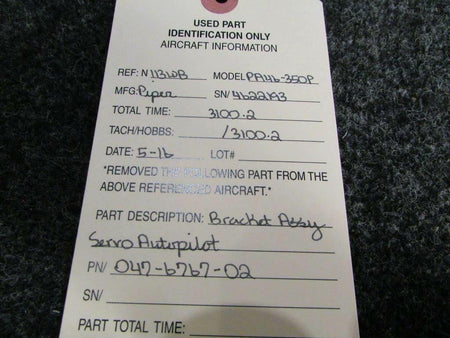 USED PART
IDENTIFICATION ONLY
AIRCRAFT INFORMATION
REF: N1131WB MODEL PA46-350P
MFG: Piper SN/ 4622193
TOTAL TIME: 3100.2
TACH/HOBBS: /3100.2
DATE: 5-16 LOT#
*REMOVED THE FOLLOWING PART FROM THE
ABOVE REFERENCED AIRCRAFT.*
PART DESCRIPTION: Bracket Assy
Servo Autopilot
PN/ 047-6767-02
SN/
PART TOTAL TIME: